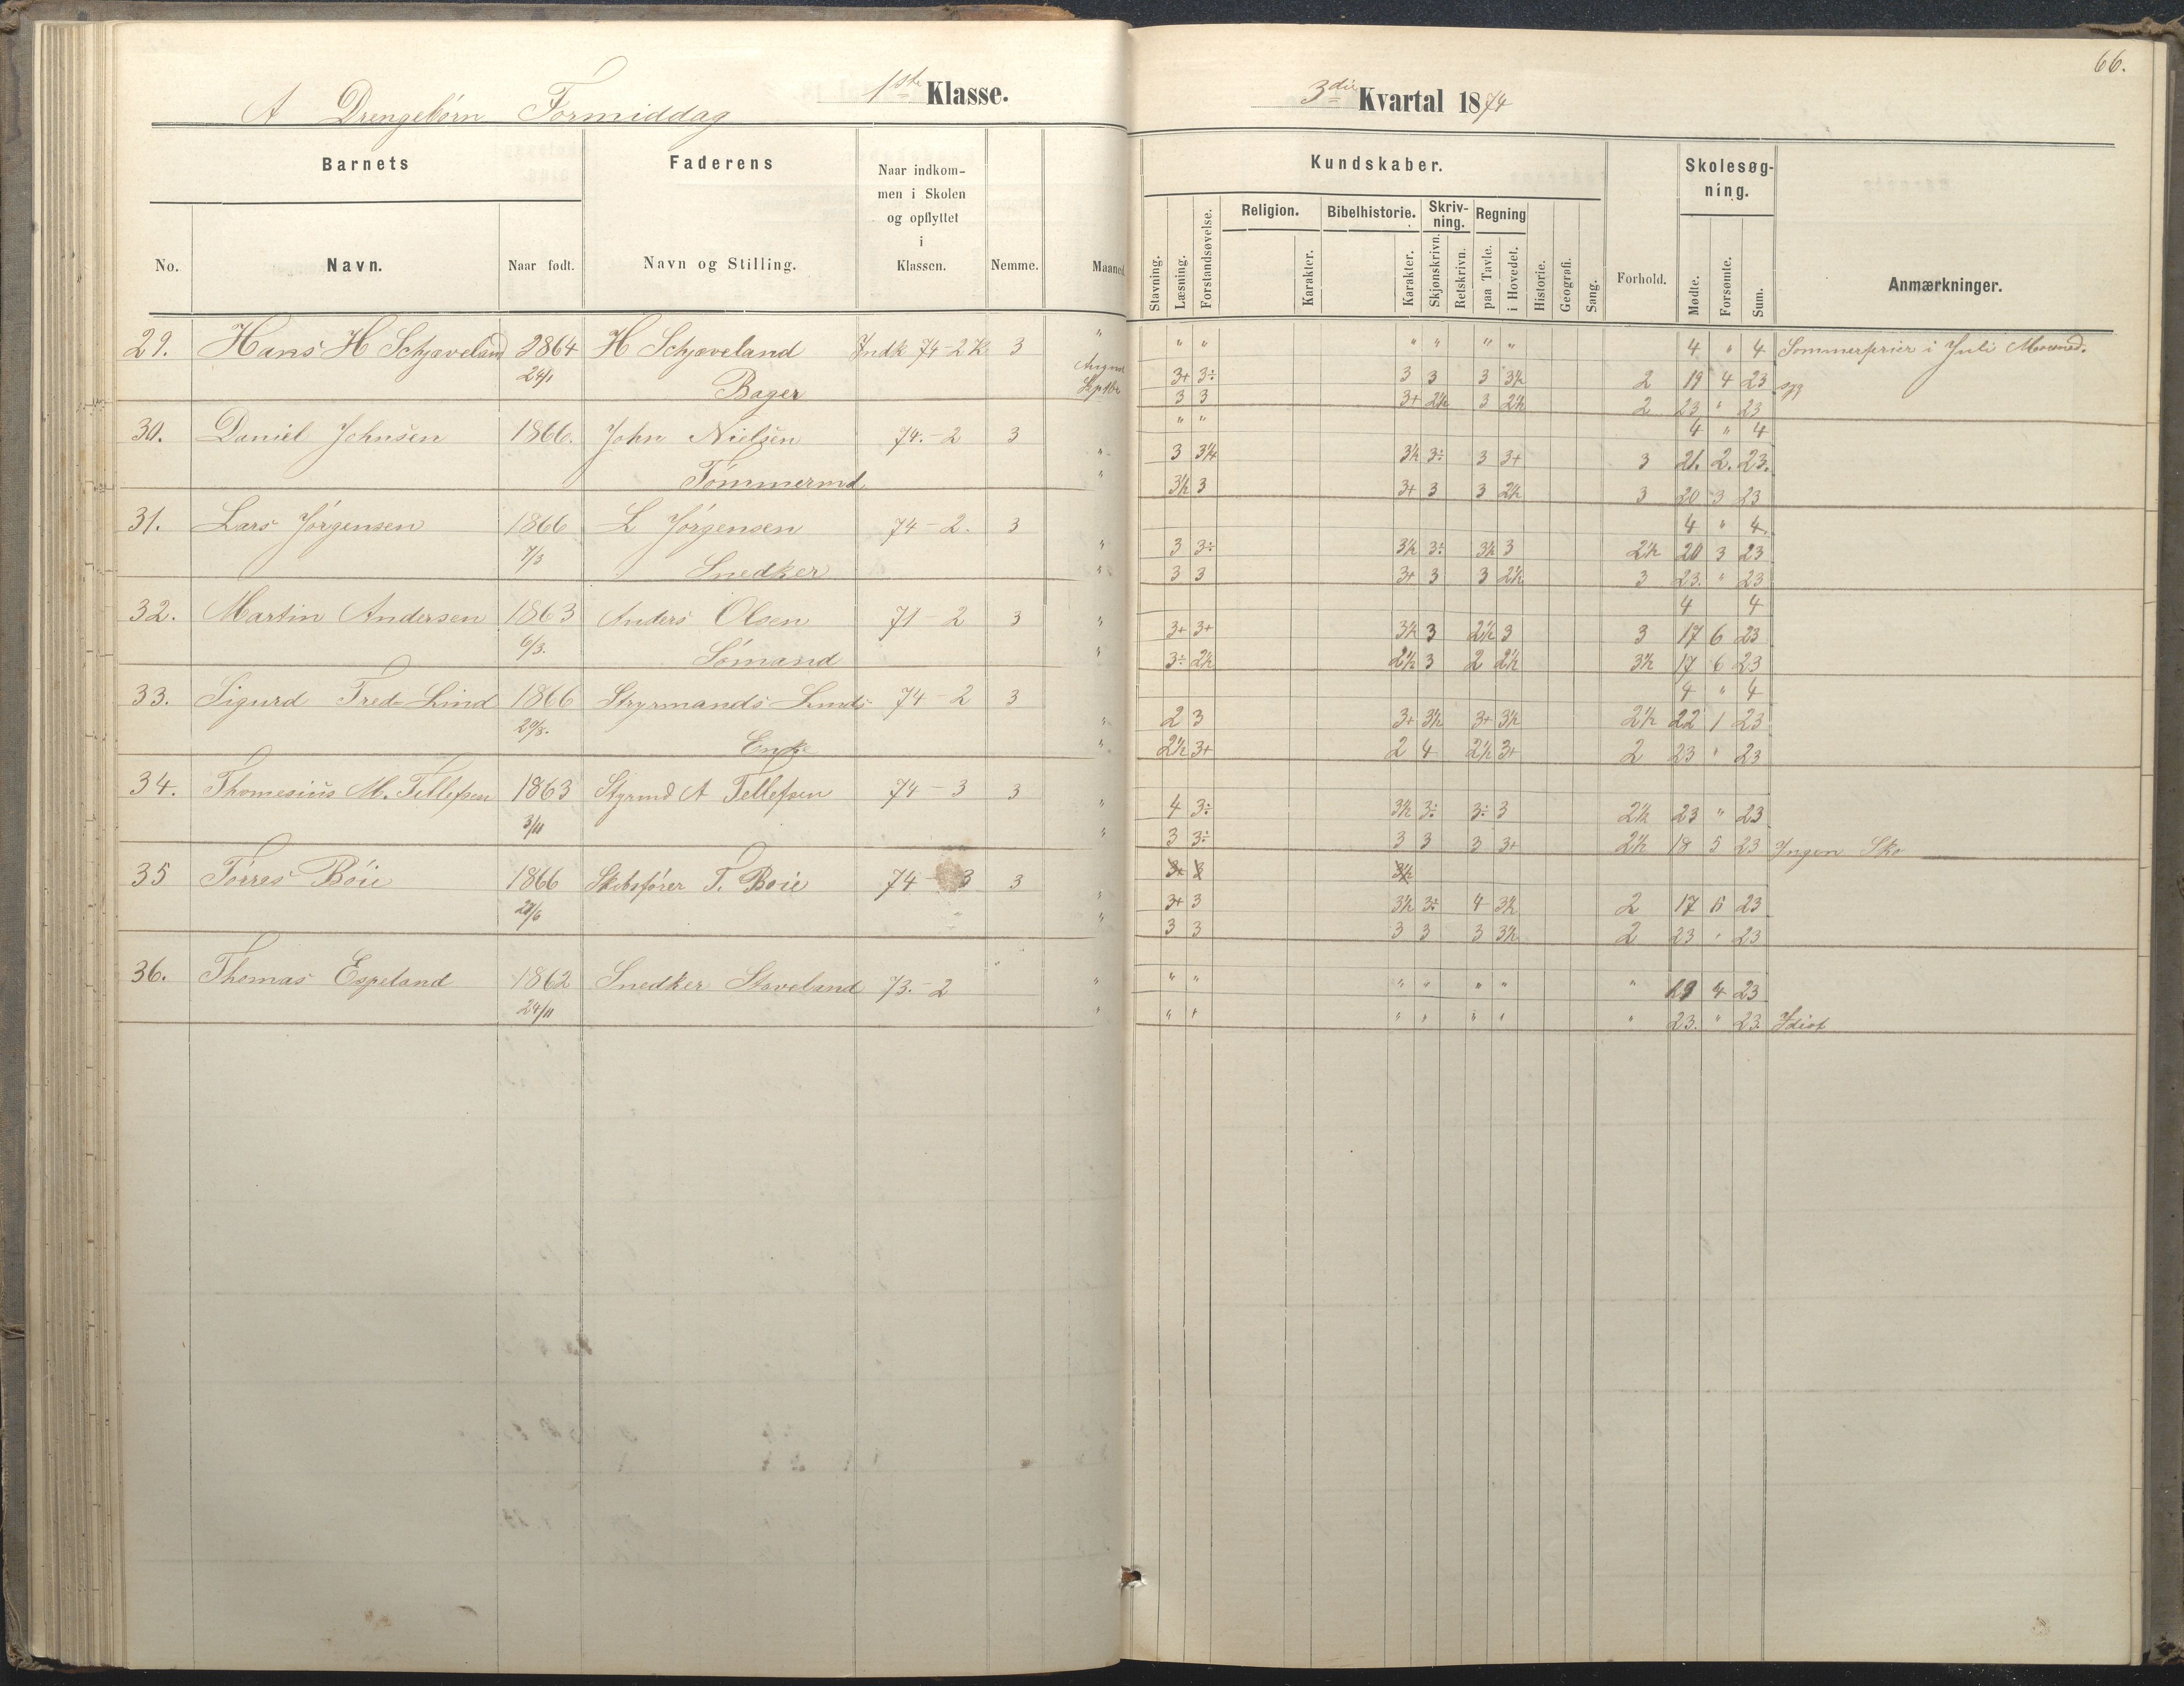 66.
A Drengebörn Formiddag 1ste Klasse. 3die Kvartal 1874
Barnets Faderens Naar indkommen i Skolen og opflyttet i Klassen. Nemme. Maaned. Kundskaber. Forhold. Skolesøgning. Anmærkninger.
No. Navn. Naar født. Navn og Stilling. Stavning. Læsning. Forstandsøvelse. Religion. Karakter. Bibelhistorie. Karakter. Skrivning. Skjønskrivn. Retskrivn. Regning paa Tavle. i Hovedet. Historie. Geografi. Sang. Mødte. Forsømte. Sum.
29. Hans H Schjaveland H Schjaveland Indk 74-2K 3 " " " " " " " 4 " 4 Sommerferier i Juli
24/1 Bager August 3+ 3÷ 3 3 3 3½ 2 19 4 23 syg
Septbr 3 3 3+ 2½ 3 2½ 2 23 " 23
30. Daniel Johnsen 1866. John Nielsen 74.-2 3 " " 4 " 4
Tømmermd " 3 3¼ 3½ 3÷ 3 3+ 3 21. 2. 23.
" 3½ 3 3+ 3 3 2½ 3 20 3 23
31. Lars Jörgensen 1866 L Jörgensen 74-2. 3 4 " 4.
7/3 Snedker " 3 3÷ 3½ 3÷ 3½ 3 2½ 20 3 23
" 3 3 3+ 3 3 2½ 3 23. " 23
32. Martin Andersen 1863 Anders Olsen 71-2 3 4 4
6/3. Sömand " 3+ 3+ 3½ 3 2½ 3 3 17 6 23
" 3÷ 2½ 2½ 3 2 2½ 3½ 17 6 23
33. Sigurd Fred Lind 1866 Styrmands Linds 74-2 3 4 " 4
Enke " 2 3 3+ 3½ 3+ 3½ 2½ 22 1 23
" 2½ 3+ 2 4 2½ 3+ 2 23 " 23
34. Thomesius M. Tellefsen 1863 Styrmd A Tellefsen 74-3 3
3/11 " 4 3÷ 3½ 3÷ 3÷ 3 2½ 23 " 23
" 3 3÷ 3 3 3 3+ 2½ 18 5 23 Ingen Sko
35 Törres Böie 1866 Skibsfører T. Boie 74-3 3 3+ 3½
" 3+ 3 3½ 3÷ 4 3½ 2 17 6 23
" 3 3 3 3 3 3½ 2 23 " 23
36. Thomas Espeland 1862 Snedker Staveland 73.-2 " " " " " " " " 19 4 23
24/11 " " " " " " " " 23. " 23. Idiot